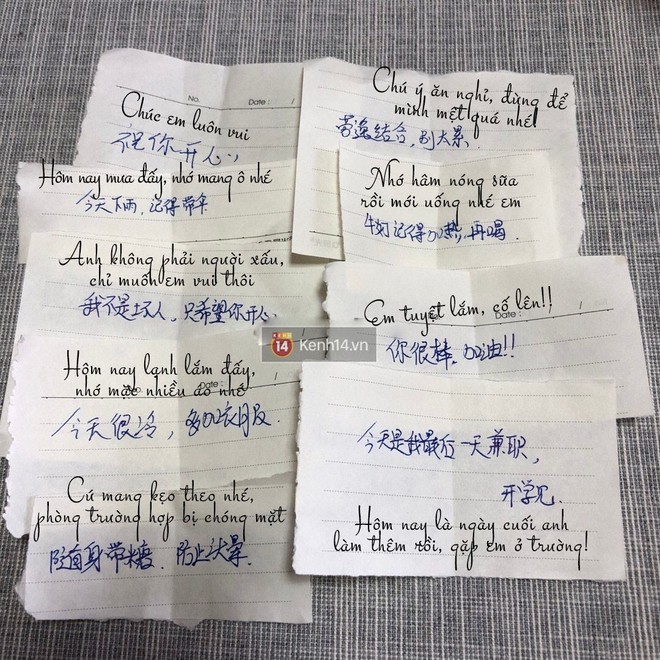 No.
Date :
Chúc em luôn vui
祝你开心:)
Hôm nay mưa đấy, nhớ mang ô nhé
今天下雨,记得带伞
Anh không phải người xấu,
chỉ muốn em vui thôi
我不是坏人,只希望你开心
Hôm nay lạnh lắm đấy,
nhớ mặc nhiều áo nhé
Date :
今天很冷,多加衣服.
Cứ mang kẹo theo nhé,
phòng trường hợp bị chóng mặt
随身带糖.防止头晕.
Chú ý ăn nghỉ, đừng để
mình mệt quá nhé!
劳逸结合,别太累.
Nhớ hâm nóng sữa
rồi mới uống nhé em
牛奶记得加热,再喝.
Em tuyệt lắm, cố lên!!
Date :
你很棒,加油!!
14
Kenh14.vn
今天是我最后一天兼职,
开学见.
Hôm nay là ngày cuối anh
làm thêm rồi, gặp em ở trường!